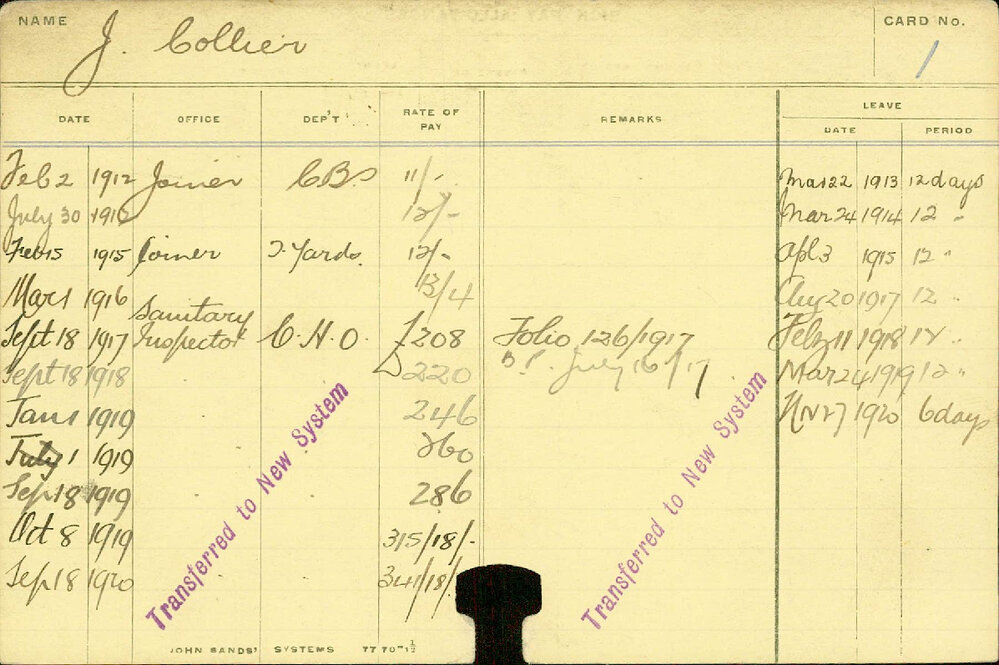 NAME J. Collier CARD No. 1
DATE OFFICE DEP'T RATE OF PAY REMARKS LEAVE
DATE PERIOD
Feb 2 1912 Joiner C.B.S 11/- Mar 22 1913 12 days
July 30 12/- Mar 24 1914 12 "
Feb 15 1915 Joiner D. Yards. 12/- Apl 3 1915 12 "
Mar 1 1916 13/4 Aug 20 1917 12 "
Sept 18 1917 Sanitary Inspector C.H.O. £208 Folio 126/1917 Feb 11 1918 12 "
Sept 18 1918 220 July 16/17 Mar 24 1919 12 "
Jan 1 1919 246 Nov 7 1920 6 days
July 1 1919 260
Sep 18 1919 286
Oct 8 1919 315/18/-
Sep 18 1920 341/18/
Transferred to New System
Transferred to New System
JOHN SANDS' SYSTEMS 77 70